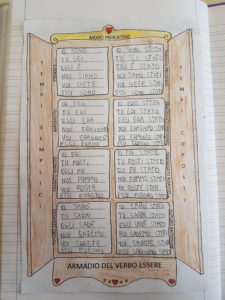 MODO INDICATIVO
TEMPI SEMPLICI
IO SONO
TU SEI
EGLI È
NOI SIAMO
VOI SIETE
ESSI SONO
IO SONO STATO
TU SEI STATO
EGLI È STATO
NOI SIAMO STATI
VOI SIETE STATI
ESSI SONO STATI
IO ERO
TU ERI
EGLI ERA
NOI ERAVAMO
VOI ERAVATE
IO ERO STATO
TU ERI STATO
EGLI ERA STATO
NOI ERAVAMO STATI
VOI ERAVATE STATI
IO FUI
TU FOSTI
EGLI FU
NOI FUMMO
VOI FOSTE
ESSI FURONO
IO FUI STATO
TU FOSTI STATO
EGLI FU STATO
NOI FUMMO STATI
VOI FOSTE STATI
IO SARÒ
TU SARAI
EGLI SARÀ
NOI SAREMO
VOI SARETE
IO SARÒ STATO
TU SARAI STATO
EGLI SARÀ STATO
NOI SAREMO STATI
VOI SARETE STATI
ARMADIO DEL VERBO ESSERE